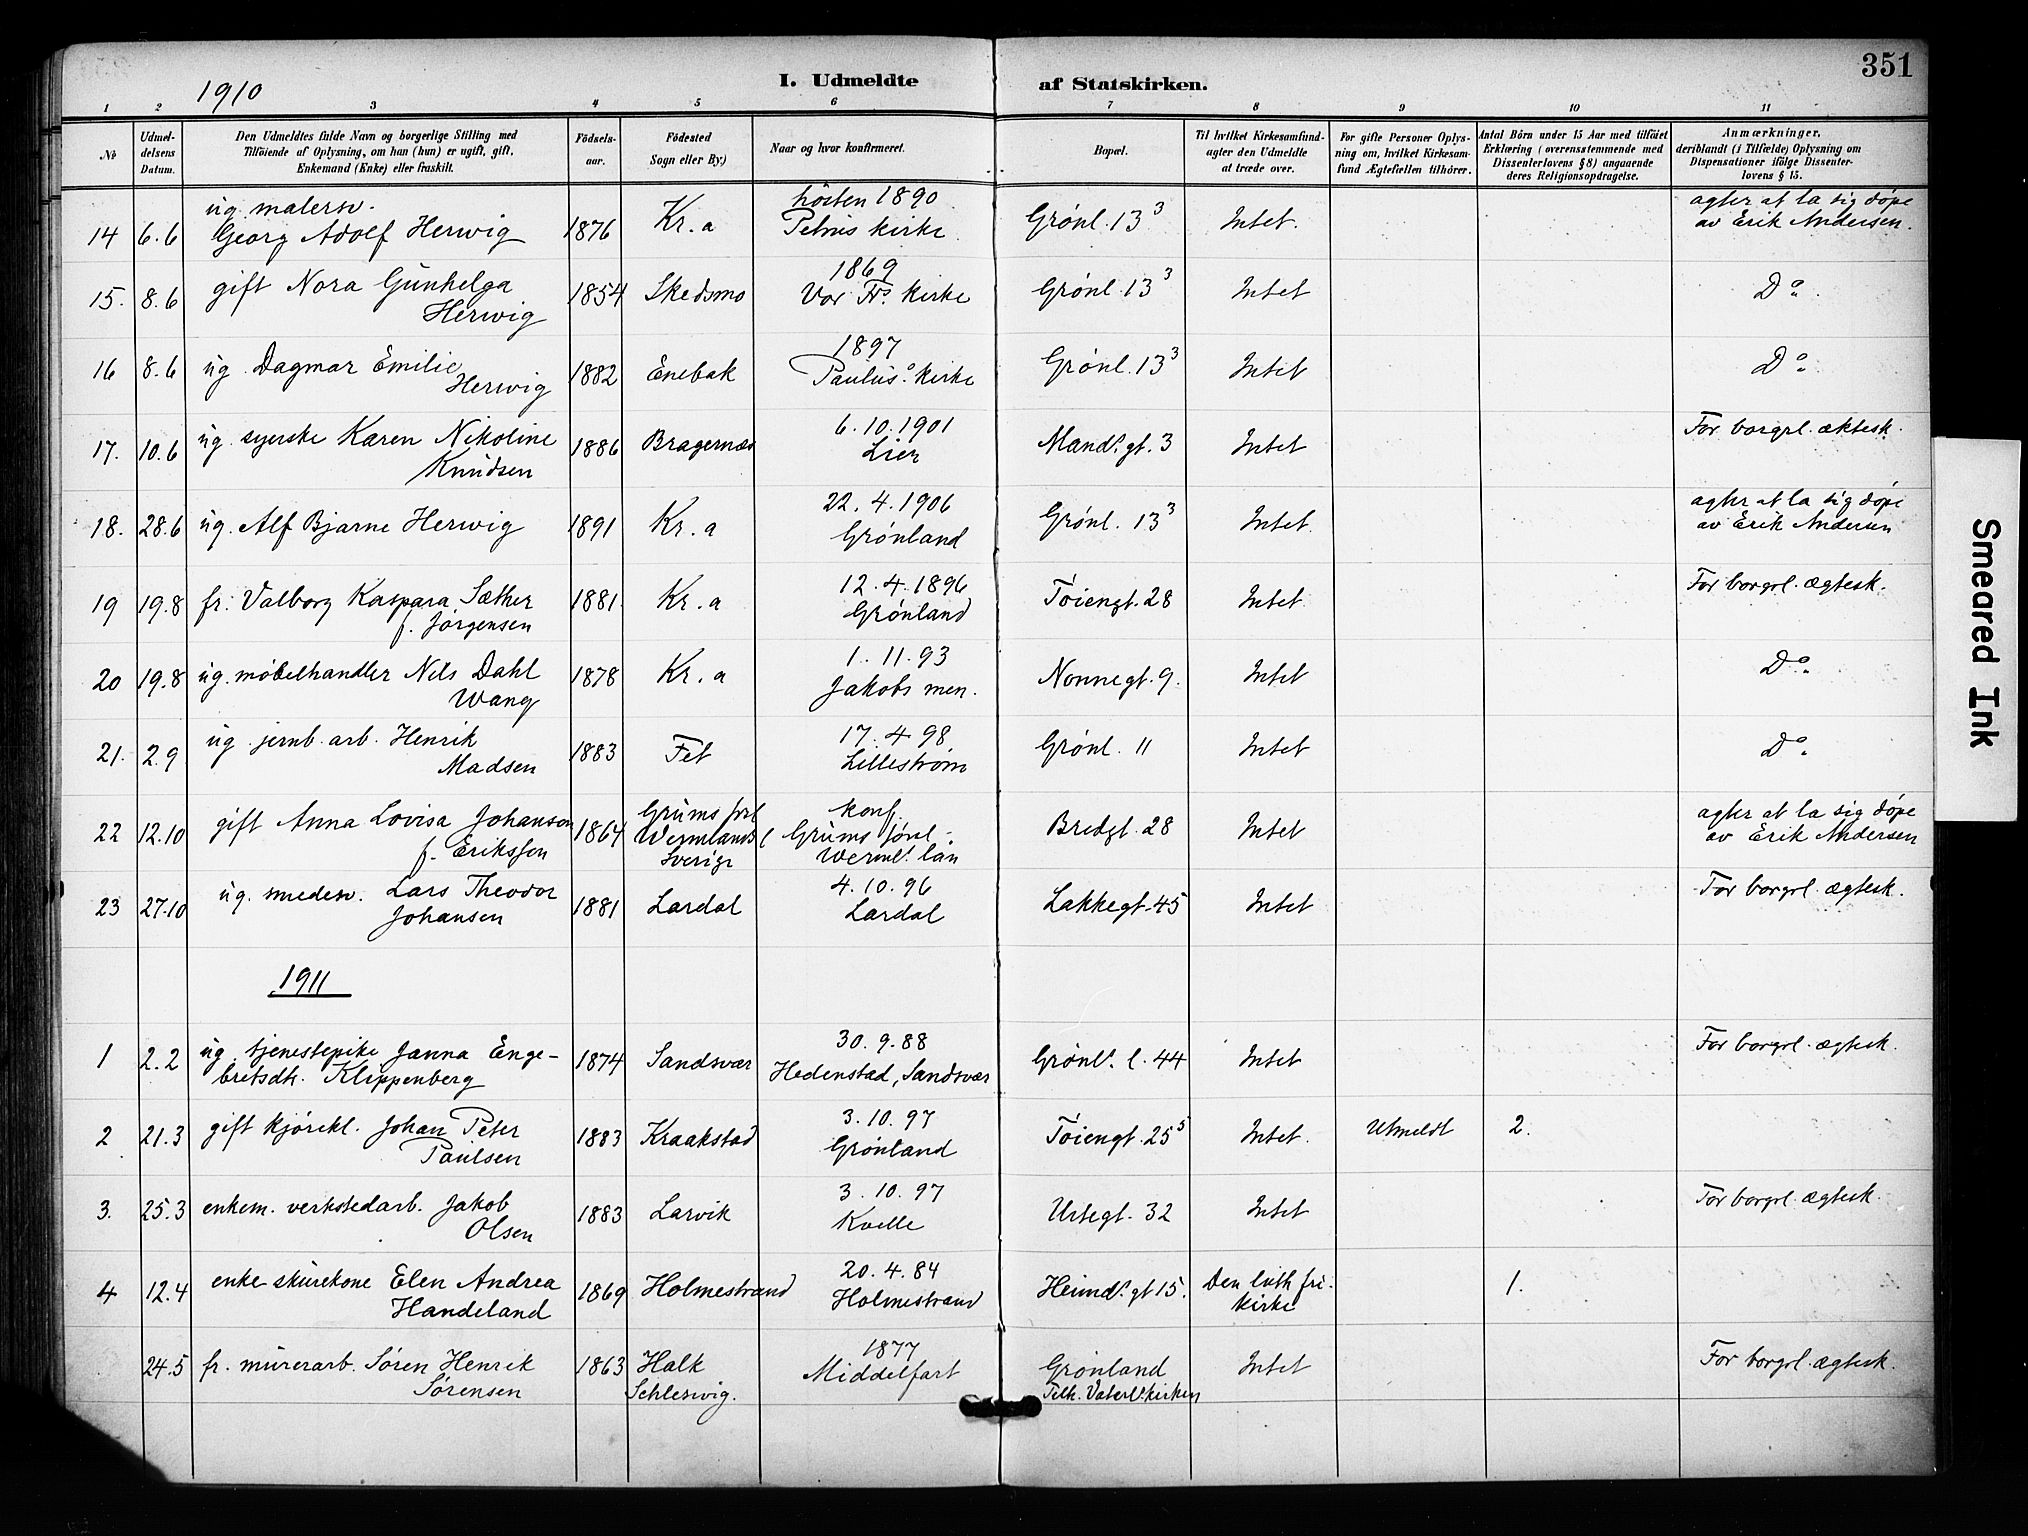 351
1910
I. Udmeldte af Statskirken.
1 2 3 4 5 6 7 8 9 10 11
No
Udmel-
delsens
Datum.
Den Udmeldtes fulde Navn og borgerlige Stilling med
Tilföiende af Oplysning, om han (hun) er ugift, gift,
Enkemand (Enke) eller fraskilt.
Födsels-
aar.
Födested
Sogn eller By.)
Naar og hvor konfirmeret.
Bopæl.
Til hvilket Kirkesamfund-
agter den Udmeldte
at træde over.
For gifte Personer Oplys-
ning om, hvilket Kirkesam-
fund Ægtefællen tilhörer.
Antal Börn under 15 Aar med tilföiet
Erklæring (overensstemmende med
Dissenterlovens § 8) angaaende
deres Religionsopdragelse.
Anmærkninger,
deriblandt (i Tilfælde) Oplysning om
Dispensationer ifölge Dissenter-
lovens § 15.
ug. malersv. høsten 1890 agter at la sig døpe
14 6.6 Georg Adolf Herwig 1876 Kr.a Petrus kirke Grønl. 13³ Intet. av Erik Andersen.
15. 8.6 gift Nora Gunhelga 1854 Skedsmo 1869 Grønl. 13³ Intet Dº
Herwig Vor Frs. kirke
16 8.6 ug. Dagmar Emilie 1882 Enebak 1897 Grønl. 13³ Intet Dº
Herwig Paulus kirke
17. 10.6 ug. syerske Karen Nikoline 1886 Bragernæs 6.10.1901 Mands. gt. 3 Intet For borgrl. æktesk.
Knudsen Lier
18. 28.6 ug. Alf Bjarne Herwig 1891 Kr.a 22.4.1906 Grønl. 13³ Intet agter at la sig døpe
Grønland av Erik Andersen
19 19.8 fr. Valborg Kaspara Sæther 1881. Kr.a 12.4.1896 Tøiengt. 28 Intet For borgrl. ægtesk.
f. Jørgensen Grønland
20 19.8 ug. møbelhandler Nils Dahl 1878 Kr.a 1.11.93 Nonnegt. 9. Intet Dº
Wang Jakobs men.
21. 2.9 ug. jernb. arb. Henrik 1883 Fet 17.4.98 Grønl. 11 Intet Dº
Madsen Lillestrøm
22 12.10 gift Anna Lovisa Johanson 1864 Grums Bredgt. 28 Intet agter at la sig døpe
f. Eriksson Sverige konf. Grums Werml. län av Erik Andersen
23 27.10 ug. smedesv. Lars Theodor 1881 Lardal 4.10.96 Lakkegt. 45 Intet For borgrl. ægtesk.
Johansen Lardal
1911
1 2.2 ug. tjenestepike Janna Enge- 1874 Sandsvær 30.9.88 Grønls. l. 44 Intet For borgrl. ægtesk.
bretsdtr. Klippenberg Hedenstad, Sandsvær
2 21.3 gift kjørekl. Johan Peter 1883 Kraakstad 3.10.97 Tøiengt. 25⁵ Intet. Utmeldt 2.
Paulsen Grønland
3. 25.3 enkem. verkstedarb. Jakob 1883 Larvik 3.10.97 Urtegt. 32 Intet For borgrl. ægtesk.
Olsen Kvelle
4 12.4 enke skurekone Elen Andrea 1869 Holmestrand 20.4.84 Heimds. gt 15. Den luth. fri- 1.
Handeland Holmestrand kirke
24.5 fr. murerarb. Søren Henrik 1863 Halk 1877 Grønland Intet For borgrl. ægtesk.
Sørensen Schleswig. Middelfart Tilh. Vaterls. kirken
Smeared Ink